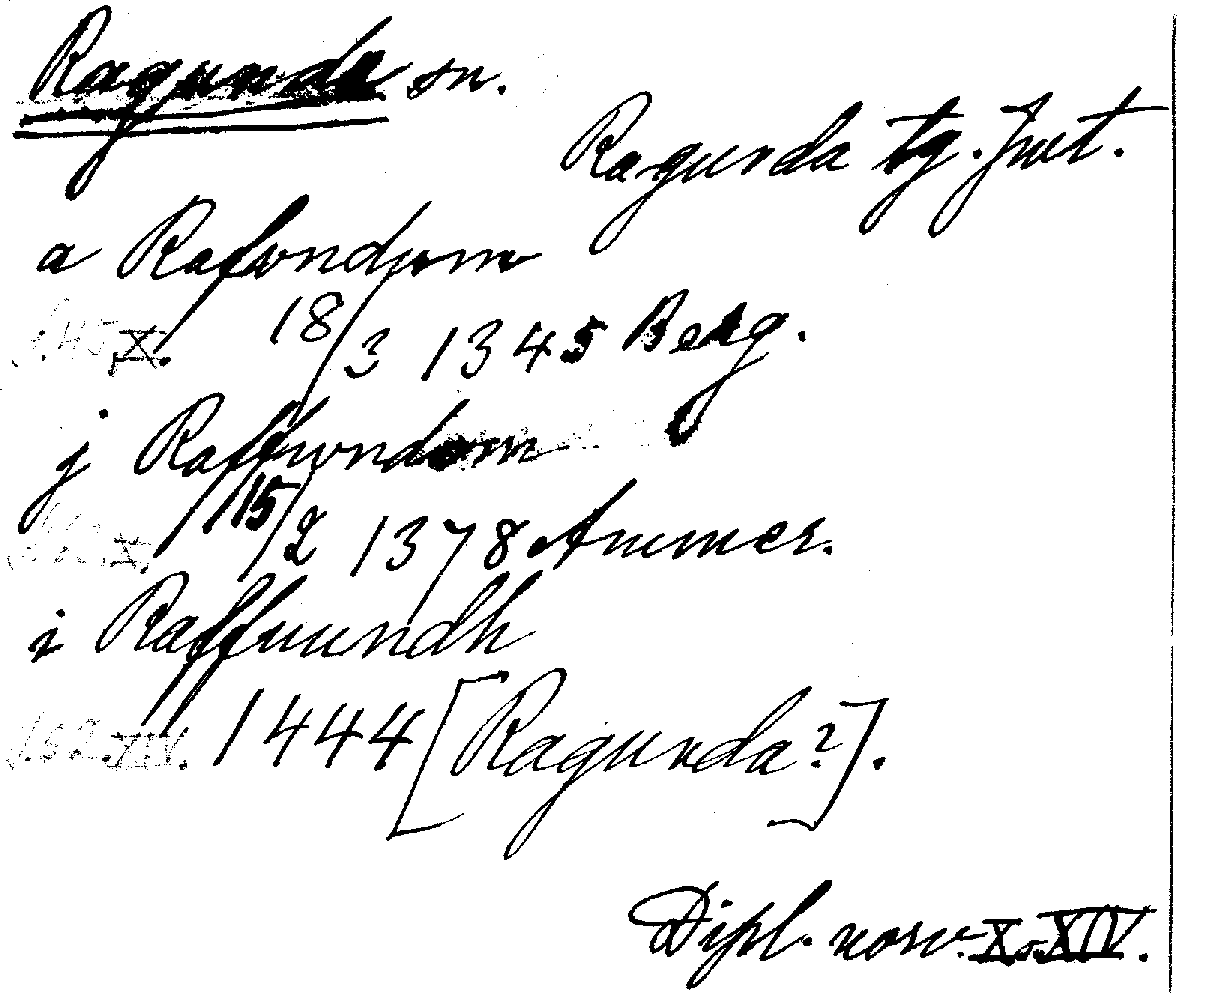 Ragunda sn.
Ragunda tg. Jmt.
a Rafwndom
s. 45 X. 18/3 1345 Berg.
j Raffwndom
X. 15/2 1378 Ammer.
i Raffuundh
s. 152 XIV. 1444 [Ragunda?].
Dipl. norv. X o. XIV.